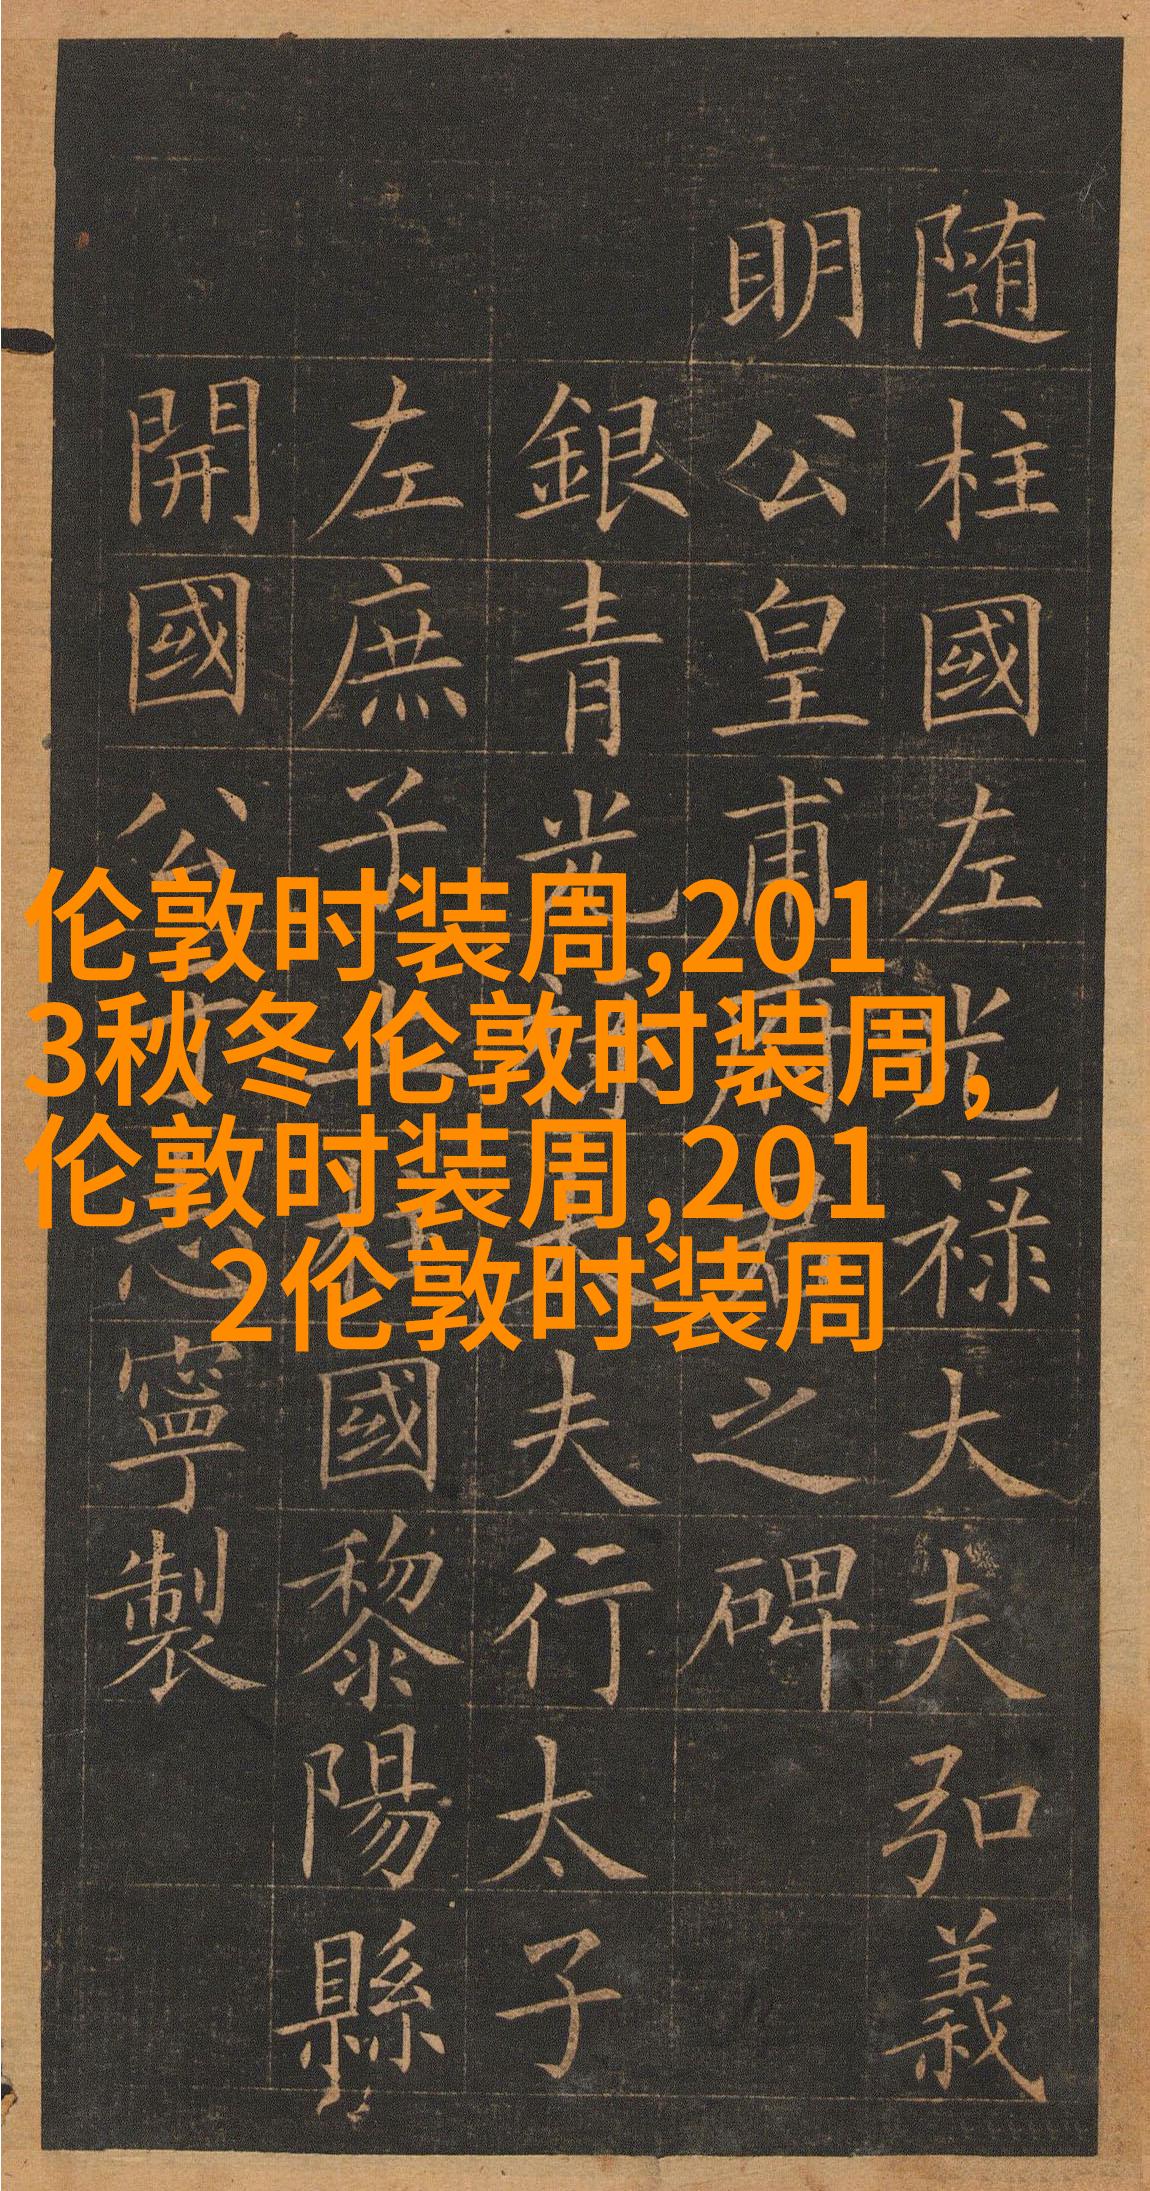 随柱國左光禄大夫弘義
明公皇甫府君之碑
銀青光禄大夫行太子
左庶子上柱國黎陽縣
開國公于志寧製
伦敦时装周,201
3秋冬伦敦时装周,
伦敦时装周,201
2伦敦时装周